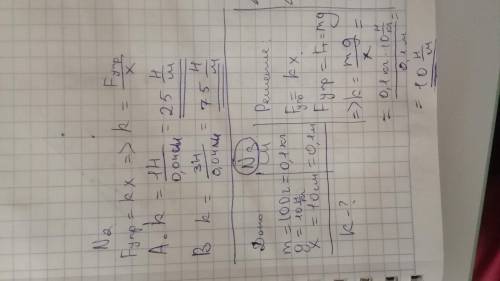 N2
Fупр = kx => k = Fупр/x
A. k = 1Н/0,04м = 25 Н/м
B k = 3Н/0,04м = 75 Н/м
Дано: СИ
m = 100г = 0,1 кг
g = 10 Н/кг
x = 10 см = 0,1 м
k - ?
N3
Решение.
Fупр = kx
Fупр = Fт = mg
=> k = mg/x =
= 0,1 кг · 10 Н/кг / 0,1 м =
= 10 Н/м